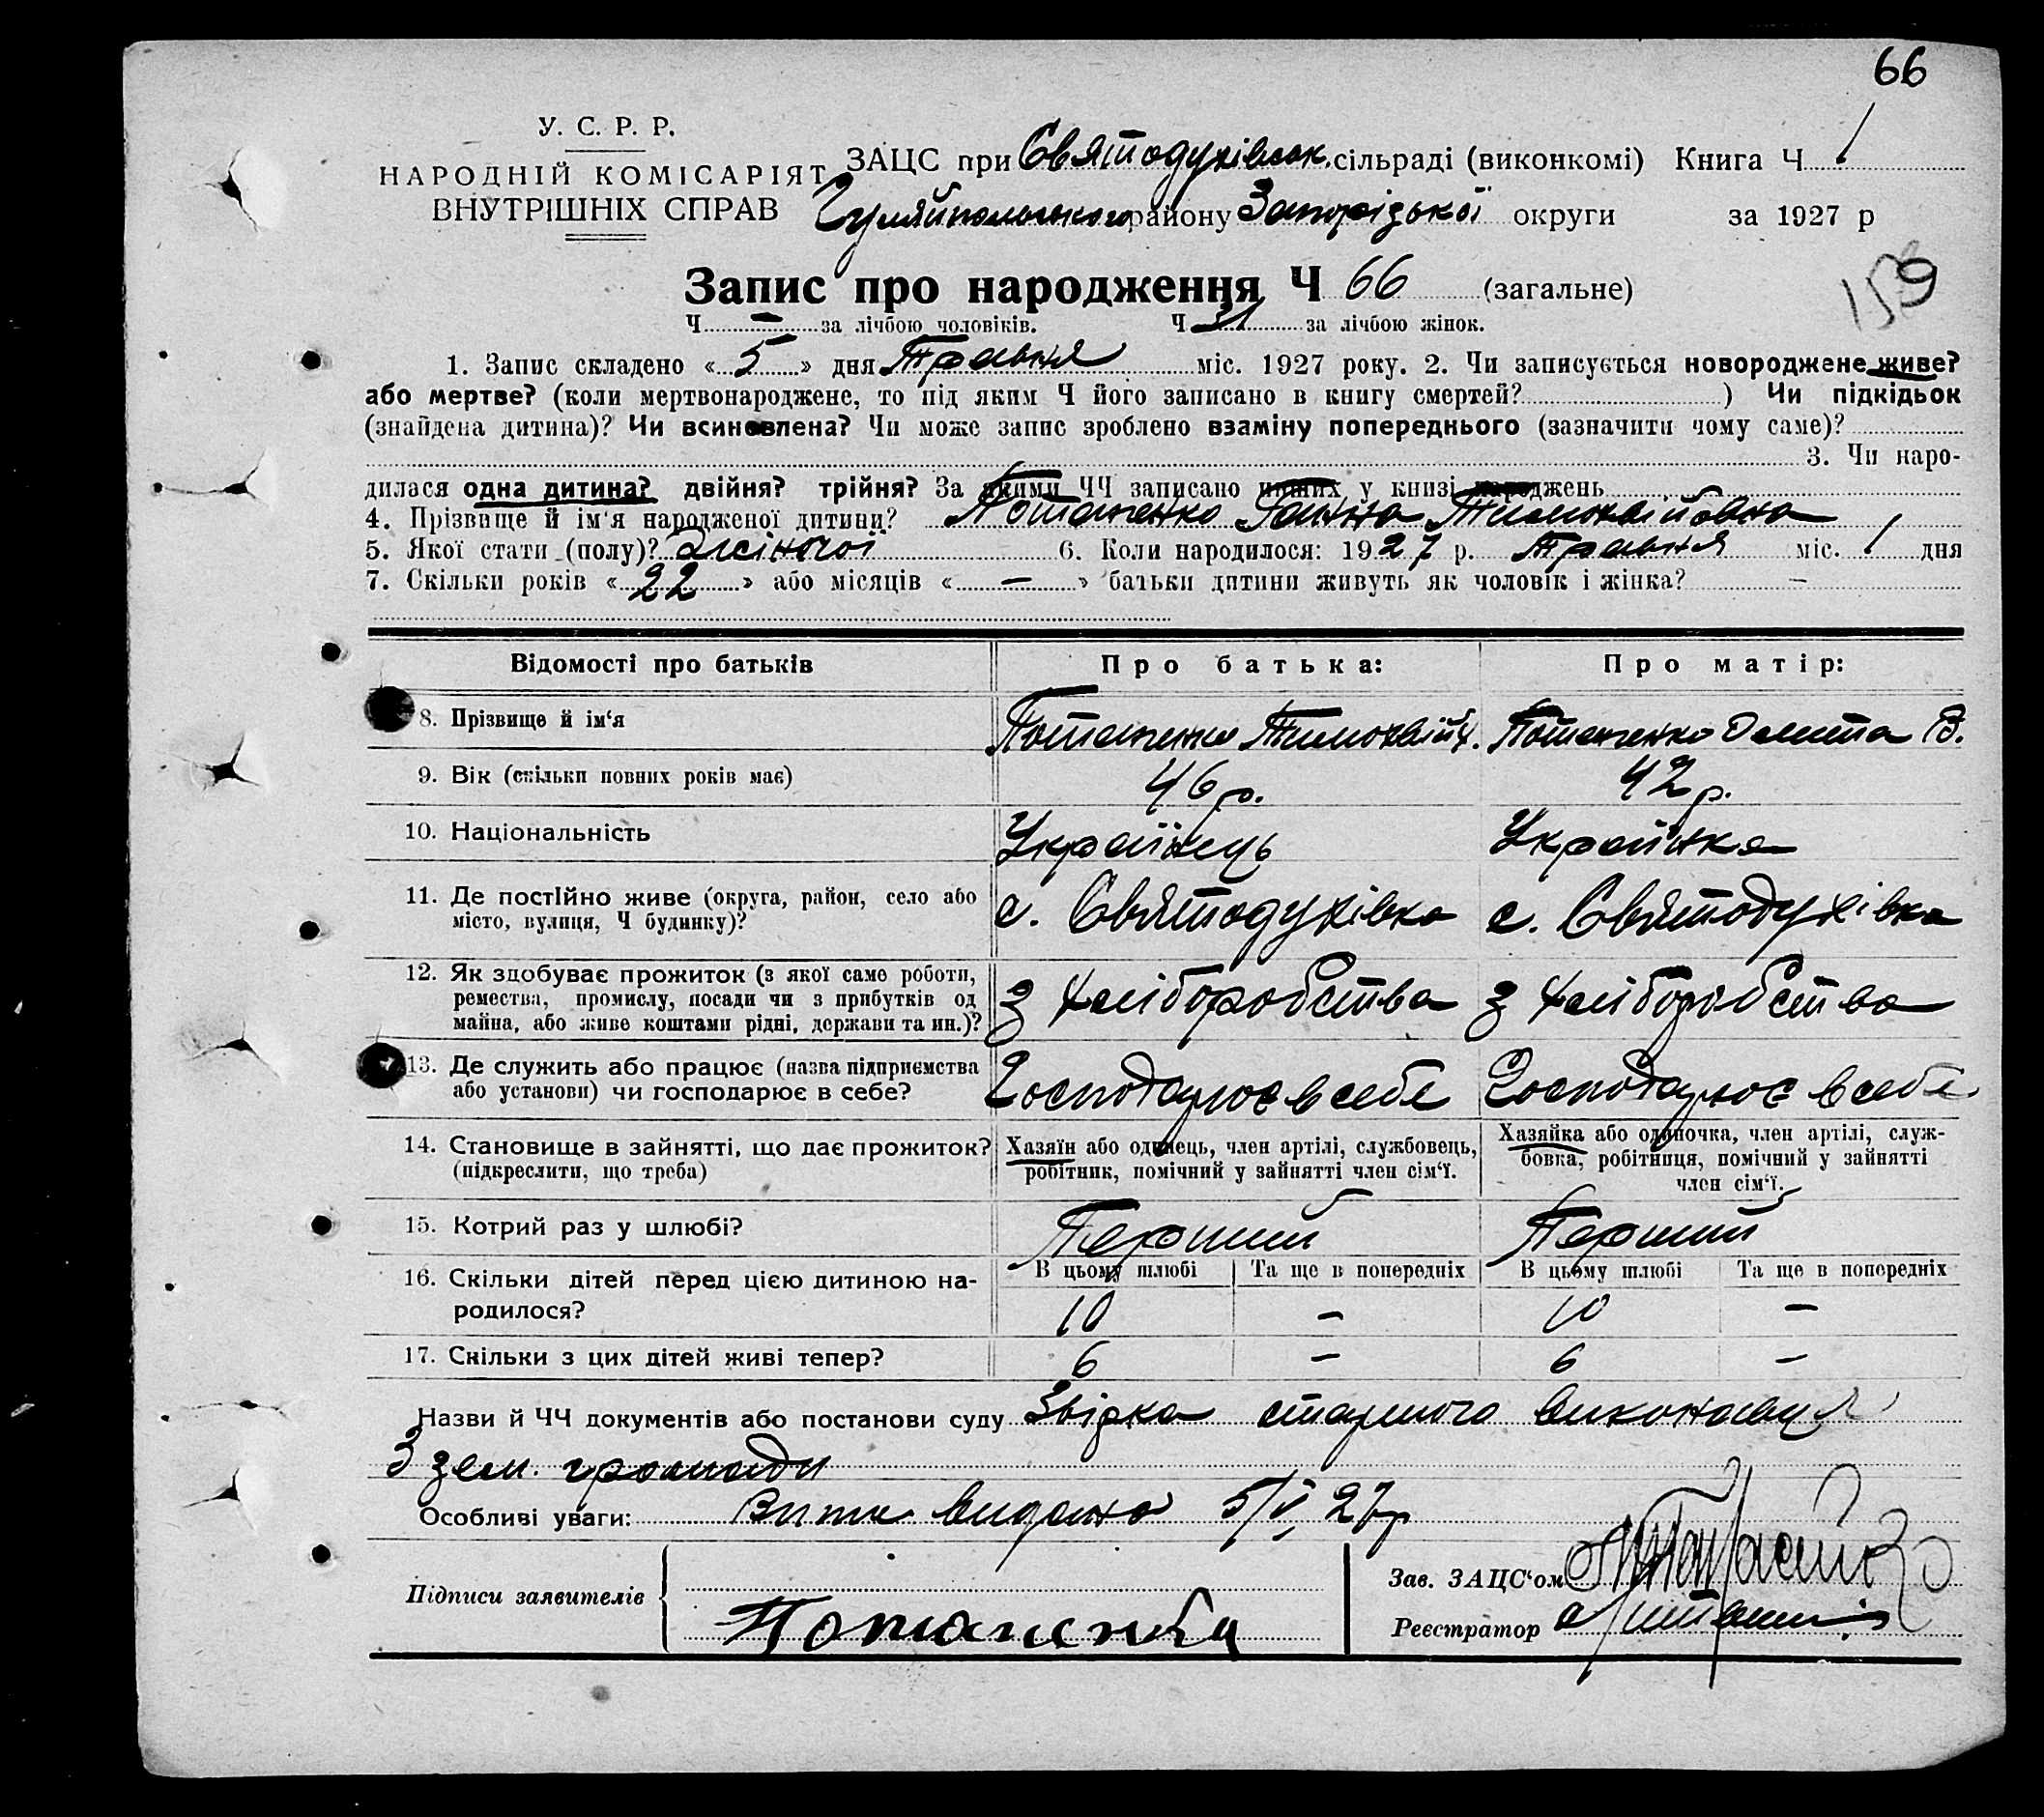 66
У. С. Р. Р.
НАРОДНІЙ КОМІСАРІЯТ
ВНУТРІШНІХ СПРАВ
ЗАЦС при Святодухівськ. сільраді (виконкомі) Книга Ч 1
Гуляйпольського району Запорізької округи за 1927 р
159
Запис про народження Ч 66 (загальне)
Ч — за лічбою чоловіків. Ч 31 за лічбою жінок.
1. Запис складено « 5 » дня Травня міс. 1927 року. 2. Чи записується новороджене живе?
або мертве? (коли мертвонароджене, то під яким Ч його записано в книгу смертей? ) Чи підкідьок
(знайдена дитина)? Чи всиновлена? Чи може запис зроблено взаміну попереднього (зазначити чому саме)?
3. Чи наро-
дилася одна дитина? двійня? трійня? За якими ЧЧ записано инших у книзі народжень
4. Прізвище й ім'я народженої дитини? Потапенко Ганна Тимохвійовна
5. Якої стати (полу)? Жіночої 6. Коли народилося: 1927 р. Травня міс. 1 дня
7. Скільки років « 22 » або місяців « — » батьки дитини живуть як чоловік і жінка? —
Відомості про батьків Про батька: Про матір:
8. Прізвище й ім'я Потапенко Тимохвій Потапенко В.
9. Вік (скільки повних років має) 46 р. 42 р.
10. Національність Українець Українка
11. Де постійно живе (округа, район, село або
місто, вулиця, Ч будинку)? с. Святодухівка с. Святодухівка
12. Як здобуває прожиток (з якої саме роботи,
ремества, промислу, посади чи з прибутків од
майна, або живе коштами рідні, держави та ин.)? З хліборобства З хліборобства
13. Де служить або працює (назва підприємства
або установи) чи господарює в себе? Господарює в себе Господарює в себе
14. Становище в зайнятті, що дає прожиток?
(підкреслити, що треба)
Хазяїн або одинець, член артілі, службовець,
робітник, помічний у зайнятті член сім'ї.
Хазяйка або одиночка, член артілі, служ-
бовка, робітниця, помічний у зайнятті
член сім'ї.
15. Котрий раз у шлюбі? Перший Перший
16. Скільки дітей перед цією дитиною на-
родилося?
В цьому шлюбі Та ще в попередніх В цьому шлюбі Та ще в попередніх
10 — 10 —
17. Скільки з цих дітей живі тепер? 6 — 6 —
Назви й ЧЧ документів або постанови суду Звірка старшого виконавця
3 зем. громади
Особливі уваги: видано 5/V 27р
Підписи заявителів
Зав. ЗАЦС'ом
Реєстратор